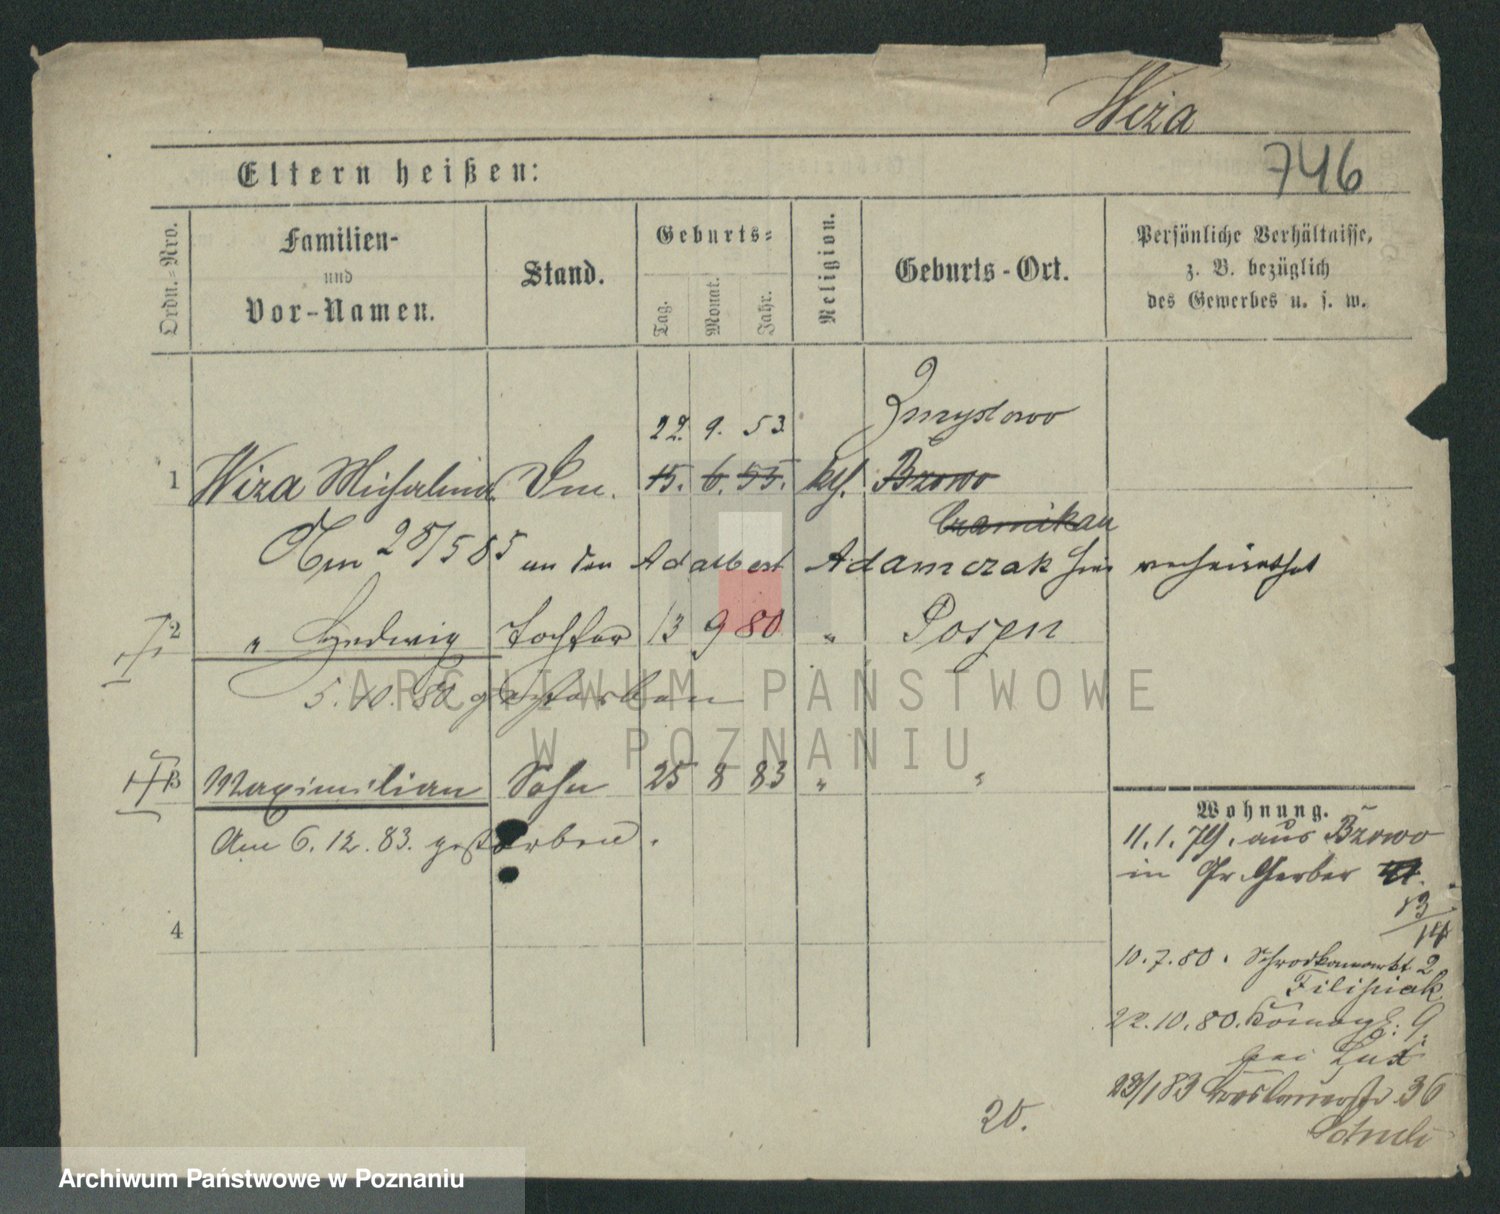 Wiza
746
Eltern heißen:
Ordn.=Nro.
Familien-
und
Vor-Namen.
Stand.
Geburts=
Tag.
Monat.
Jahr.
Religion.
Geburts-Ort.
Persönliche Verhältnisse,
z. B. bezüglich
des Gewerbes u. s. w.
22. 9. 53. Zmyslowo
1 Wiza Michalina 15. 6. 55. kth. Bzowo
Czarnikau
Am 25/5 85 an den Adalbert Adamczak hier verheirathet
2 " Hedwig Tochter 13 9 80 " Posen
5. 10. 80 gestorben
3 Maximilian Sohn 25 8 83 " "
Am 6. 12. 83. gestorben.
4
Wohnung.
11. 1. 79. aus Bzowo
in Gr. Gerber
13/14
10. 7. 80. Schrodkamarkt 2
Filipiak
22. 10. 80. 9
bei Lux
23/1 83 36
20.
ARCHIWUM PAŃSTWOWE
W POZNANIU
Archiwum Państwowe w Poznaniu